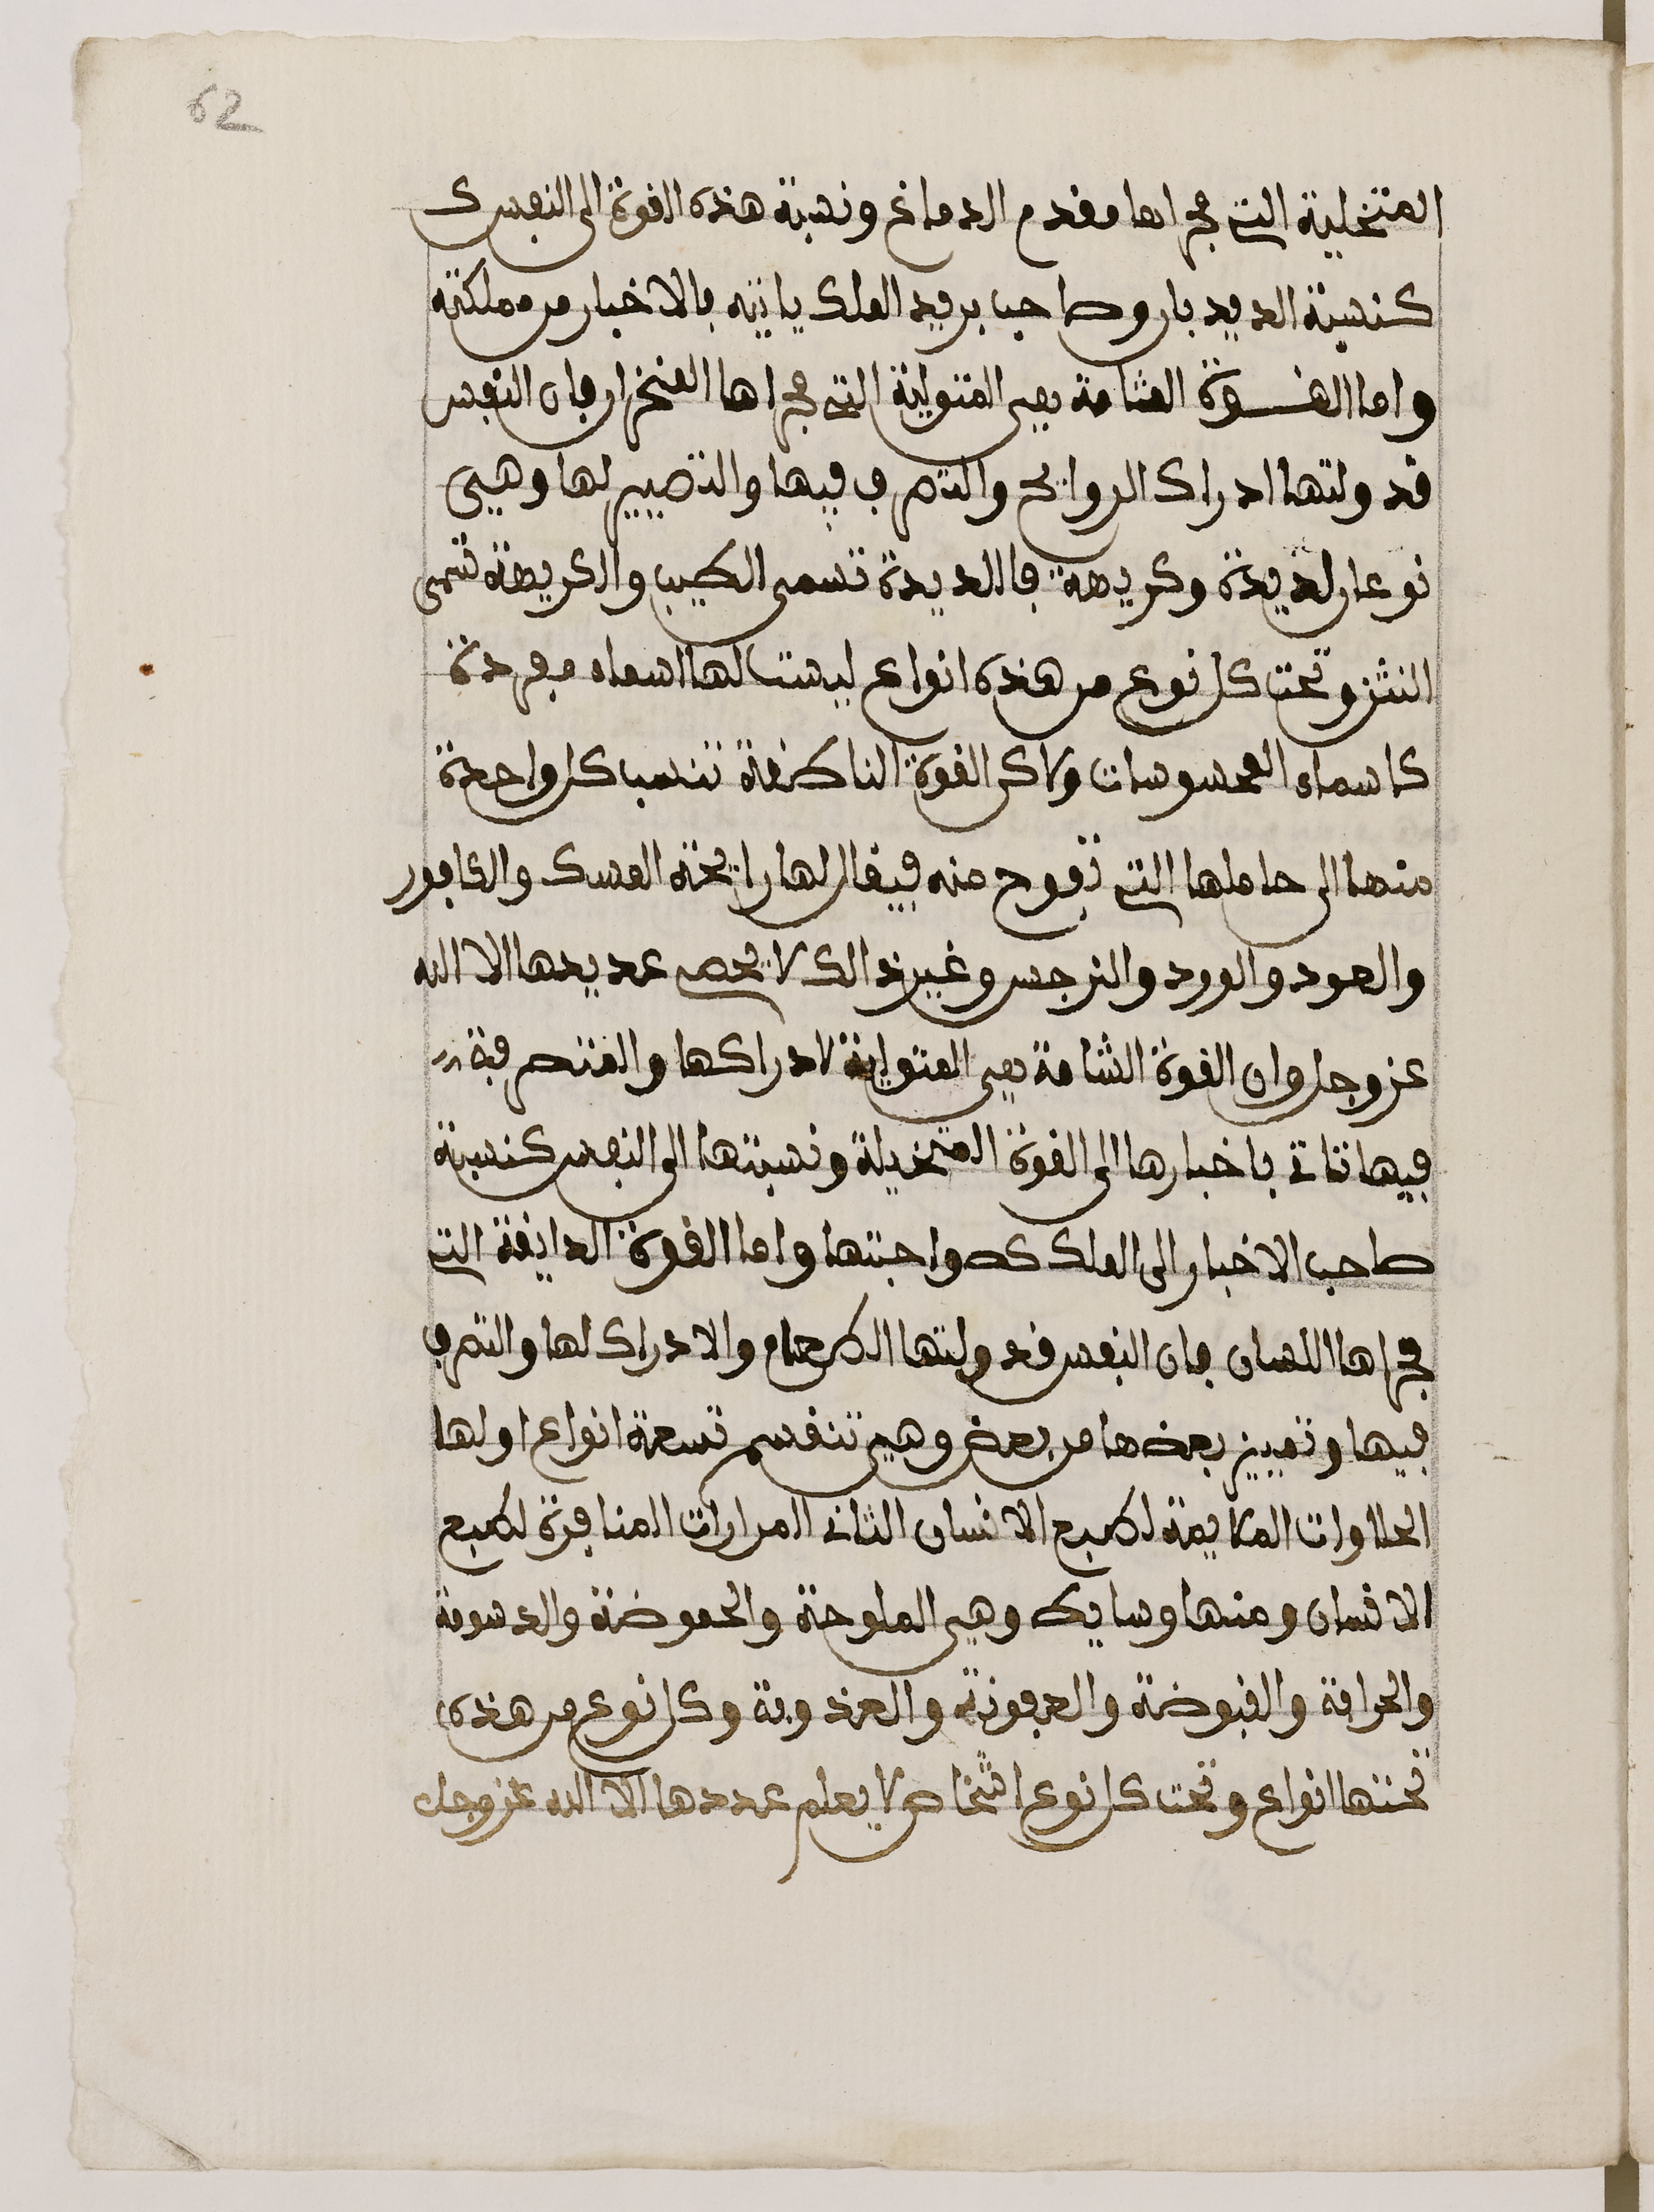 62
المتخلية التي مجراها مقدم الدماغ ونسبة هذه القوة الى النفس ك
كنسبة الديدبار وصاحب بريد الملك ياتيه بالاخبار من مملكته
واما القوة الشامة بهي المتولية التي مجراها المنخران فان النفس
قد ولتها ادراك الروايح والتصرف فيها والتصيير لها وهي
نوعان لذيذة وكريهة فاللذيذة تسمى الطيب والكريهة تسمى
النتن وتحت كل نوع من هذه انواع ليست لها اسماء مفردة
كاسماء المحسوسات ولاكن القوة الناطقة تنسب كل واحدة
منها الى حاملها التي تفوح منه فيقال لها رايحة المسك والكافور
والعود والورد والنرجس وغير ذالك لا يحصى عديدها الا الله
عز وجل وان القوة الشامة هي المتولية لادراكها والمتصرفة
فيها تاتي باخبارها الى القوة المتخيلة ونسبتها الى النفس كنسبة
صاحب الاخبار الى الملك كصواحبتها واما القوة الدايقة التي
مجراها اللسان فان النفس قد ولتها الطعام والادراك لها والتصرف
فيها وتمييز بعضها من بعض وهي تنقسم تسعة انواع اولها
الحلاوات الملايمة لطبع الانسان الثاني المرارات المنافرة لطبع
الانسان ومنها وسايط وهي الملوحة والحموضة والدسومة
والحرافة والقبوضة والعفونة والعذوبة وكل نوع من هذه
تحتها انواع وتحت كل نوع اشخاص لا يعلم عددها الا الله عز وجل